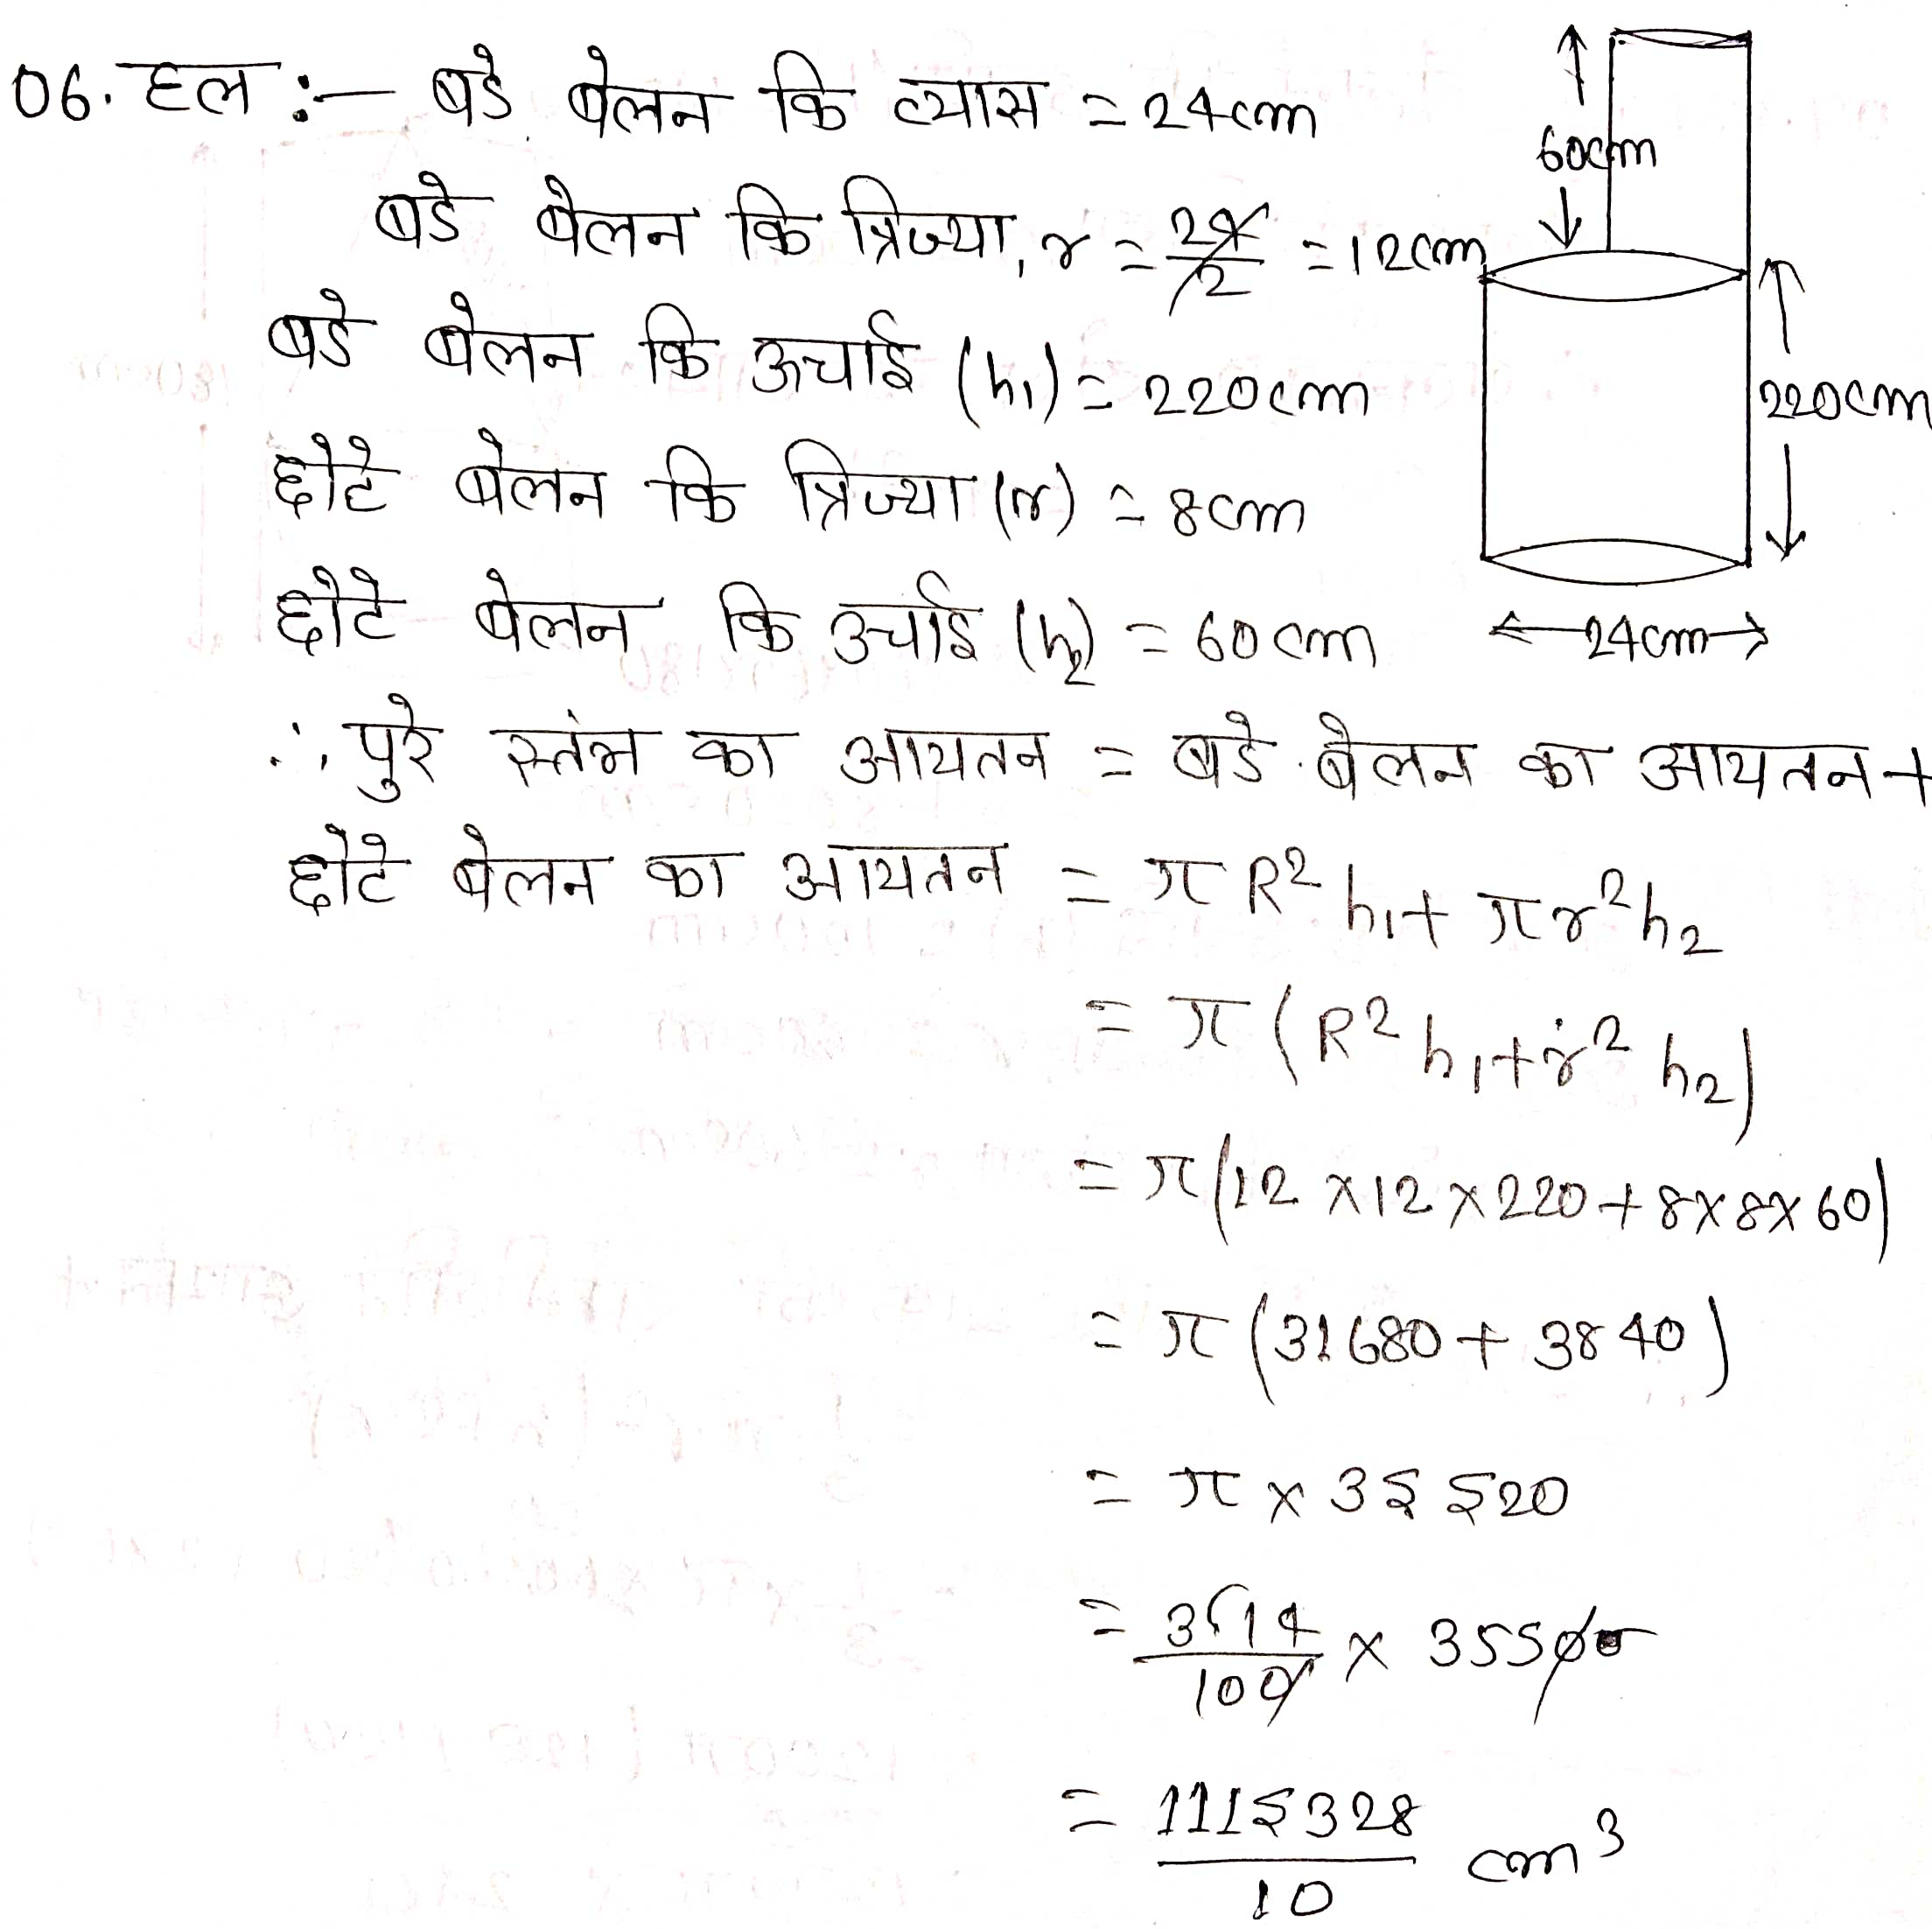 06. हल :- बडे बेलन कि व्यास = 24cm
बडे बेलन कि त्रिज्या, r = 24/2 = 12cm
बडे बेलन कि ऊचाई (h₁) = 220cm
छोटे बेलन कि त्रिज्या (r) = 8cm
छोटे बेलन कि उचाई (h₂) = 60cm
∴ पुरे स्तंभ का आयतन = बडे बेलन का आयतन +
छोटे बेलन का आयतन = πR² h₁ + πr²h₂
= π(R² h₁ + r² h₂)
= π(12 × 12 × 220 + 8 × 8 × 60)
= π(31680 + 3840)
= π × 35520
= 314/100 ×
= 1115328/10 cm³
60cm
220cm
24cm